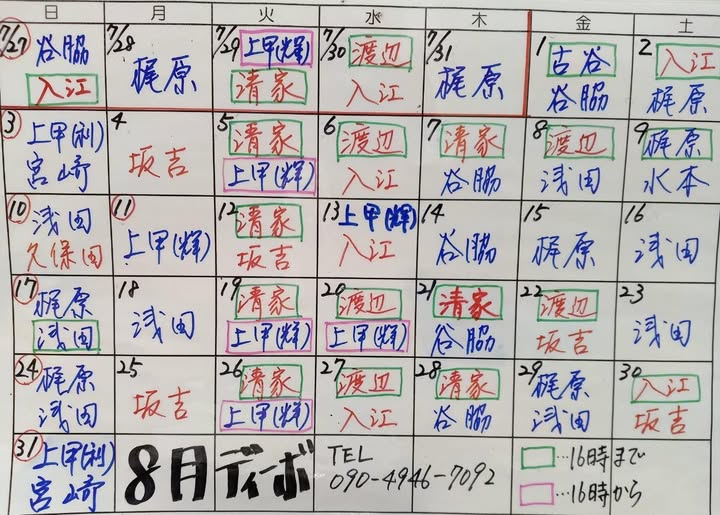 日 月 火 水 木 金 土
7/27 谷脇 入江
7/28 梶原
7/29 上甲(輝) 清家
7/30 渡辺 入江
7/31 梶原
1 古谷 谷脇
2 入江 梶原
3 上甲(利) 宮崎
4 坂吉
5 清家 上甲(輝)
6 渡辺 入江
7 清家 谷脇
8 渡辺 浅田
9 梶原 水本
10 浅田 久保田
11 上甲(輝)
12 清家 坂吉
13 上甲(輝) 入江
14 谷脇
15 梶原
16 浅田
17 梶原 浅田
18 浅田
19 清家 上甲(輝)
20 渡辺 上甲(輝)
21 清家 谷脇
22 渡辺 坂吉
23 浅田
24 梶原 浅田
25 坂吉
26 清家 上甲(輝)
27 渡辺 入江
28 清家 谷脇
29 梶原 浅田
30 入江 坂吉
31 上甲(利) 宮崎
8月ディーボ
TEL
090-4946-7092
…16時まで
…16時から